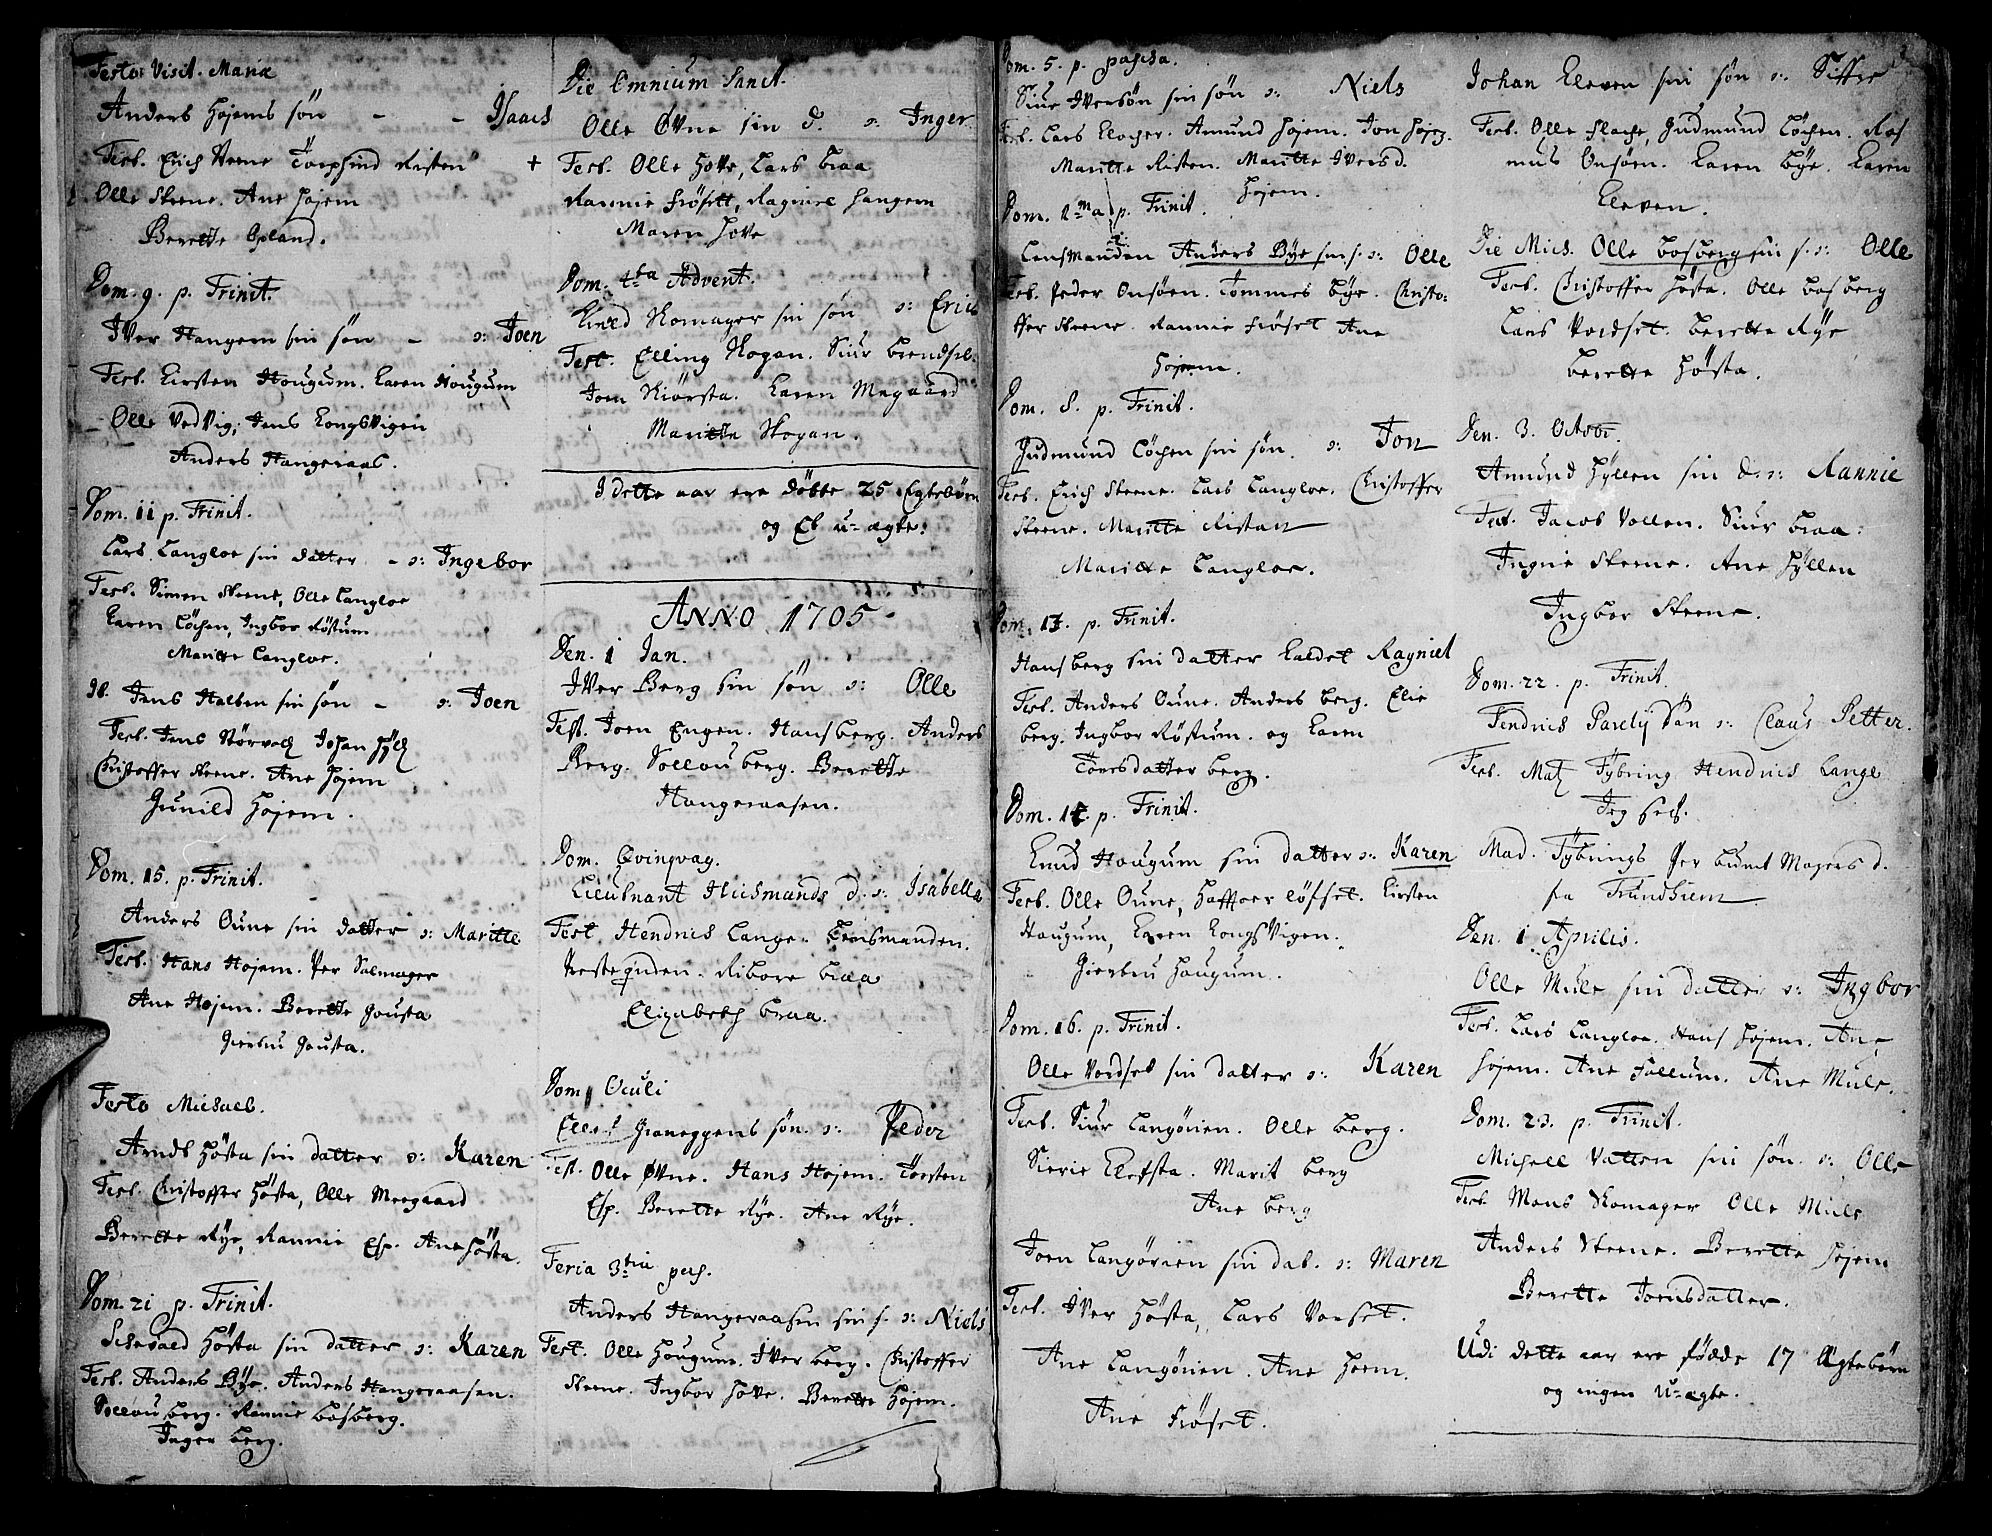 Festo Visit. Mariæ
Anders Højems søn - - Isaach
Test. Erich Steene Torphind Risten
Olle Steene. Ane Højem
Berette Opland.
Dom. 9. p. Trinit.
Iver Hangern sin søn - n: Joen
Test. Kirsten Hougum. Karen Hougum
Olle Vedvig, Jens Kongsvigen
Anders Hangeraas.
Dom. 11 p. Trinit.
Lars Langloe sin datter - n: Ingebor
Test. Simen Steene, Olle Langloe
Karen Löchen, Ingbor Röstum
Maritte Langloe.
Jens Halsen sin søn - n: Joen
Test. Jens Johan
Christoffer Steene. Ane Højem
Gunild Højem.
Dom. 15. p. Trinit.
Anders Oune sin datter n: Maritte
Test. Hans Hojem. Per Salmager
Ane Hojem. Berette Gousta
Giertru Gousta.
Festo Michaels.
Arnds Hösta sin datter n: Karen
Test. Christoffer Hösta, Olle Meegaard
Berette Rÿe, Rannie Esp. Ane Hösta.
Dom. 21 p. Trinit.
Hösta sin datter n: Karen
Test. Anders Bÿe. Anders Hangeraasen.
Sollou berg. Rannie Bosberg.
Inger berg.
Die Omnium Sanct.
Olle Øvne sin d. n: Inger
+ Test. Olle Hove, Lars Braa
Rannie Fröset, Ragniel Hangern
Maren Hove
Dom. 4ta Advent.
Skomager sin søn n: Erich
Test. Elling Skogan. Siur
Joen Kiörsta. Karen Megaard
Maritte Skogan.
I dette aar ere döbte 25 Egtebörn
og Et u-ægte.
ANNO 1705
Den. 1 Jan.
Iver Berg sin søn n: Olle
Test. Joen Engen. Hans berg. Anders
Berg. Sollou berg. Berette
Hangeraasen.
Dom. Qvinqvag.
Lieutnant Husmands d. n: Isabella
Test Hendrich Lange. Lensmanden.
Præsteqinden. Ribore Braa
Elizabeth Braa.
Dom Oculi
Ellef Graneggens søn. n: Peder
Test. Olle Øvne. Hans Højem. Torsten
Esp. Berette Rÿe. Ane Rÿe.
Feria 3tia pasch.
Anders Hangeraasen sin s. n: Niels
Test. Olle Hougum. Iver berg. Christoffer
Steene. Ingbor Hove. Berette Højem.
Dom. 5. p. pascha.
Siur Iversøn sin søn n: Niels
Test. Lars Klocher. Amund Højem. Jon
Maritte Risten. Maritte Iversd.
Højem.
Dom. p. Trinit.
Lensmanden Anders Bÿe sin s. n: Olle
Test. Peder Onsöen. Tommes Bÿe. Christo-
ffer Steene. Rannie Fröset Ane
Højem.
Dom. 8. p. Trinit.
Gudmund Löchen sin søn. n: Jon
Test. Erich Steene. Lars Langloe. Christoffer
Steene. Maritte Ristan
Maritte Langloe.
Dom. 13. p. Trinit.
Hans berg sin datter kaldet Ragniel
Test. Anders Oune. Anders berg. Elie
berg. Ingbor Röstum. og Karen
Toresdatter berg.
Dom. 14. p. Trinit.
Knud Hougum sin datter n: Karen
Test. Olle Oune, Haftor Löfset. Kirsten
Hougum, Karen Kongsvigen.
Giertru Hougum.
Dom. 16. p. Trinit.
Olle Vordset sin datter n: Karen
Test. Siur Langörien. Olle berg.
Sierie Elefsta. Marit berg
Ane berg
Joen Langörien sin dat. n: Maren
Test. Iver Hösta, Lars Vorset.
Ane Langörien. Ane Hoem.
Ane Fröset.
Johan Eleven sin søn n: Siffer
Test. Olle Flache, Gudmund Löchen. Ras
mus Onsöen. Karen Bÿe. Karen
Eleven.
Die Mich. Olle Bosberg sin s. n: Olle
Test. Christoffer Hösta. Olle Bosberg
Lars Vordset. Berette Rÿe
Berette Hösta.
Den. 3. Octob.
Amund Hÿllen sin d. n: Rannie
Test. Jacob Vollen. Siur Braa:
Ingrie Steene. Ane Hÿllen
Ingbor Steene.
Dom. 22. p. Trinit.
Hendrich Parelÿ Sön n: Claus Petter.
Test. Matz Tÿbring Hendrich Lange
Jeg self.
Mad. Tÿbrings Per Magers d.
fra Trundhiem
Den. 1 Aprilis.
Olle Mule sin datter n: Ingbor
Test. Lars Langloe. Hans Højem. Ane
Højem. Ane Follum. Ane Mule.
Dom. 23. p. Trinit.
Michell Vatten sin søn. n: Olle
Test. Mons Skomager Olle Mule
Anders Steene. Berette Højem
Berette Joensdatter.
Udi dette aar ere fødde 17 Ægtebörn
og ingen u-ægte.